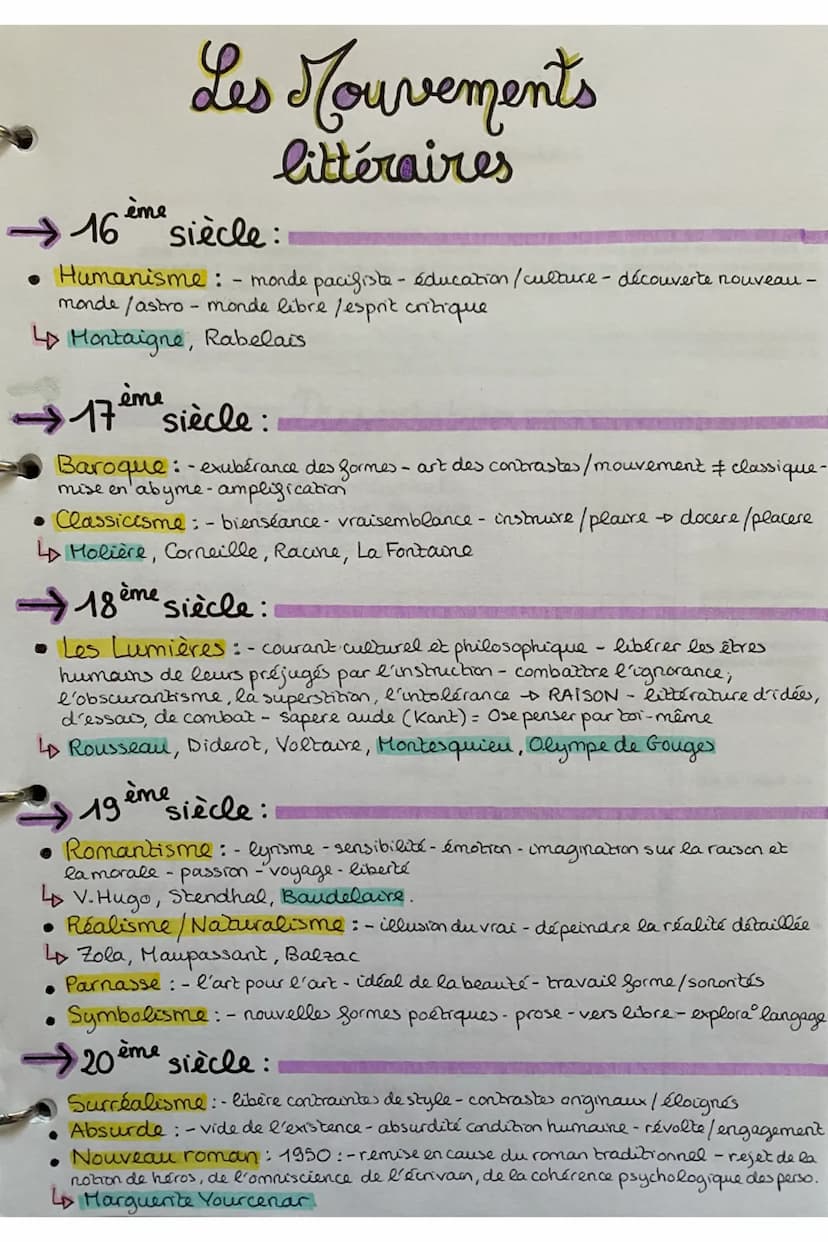 Les Mouvements
littéraires
→ 16ème siècle :
• Humanisme : - monde pacifiste - éducation/culture - découverte nouveau -
monde/astro - monde libre/esprit critique
↳ Montaigne, Rabelais
→ 17ème siècle :
• Baroque : - exubérance des formes - art des contrastes/mouvement ≠ classique -
mise en abyme - amplification
• Classicisme : - bienséance - vraisemblance - instruire/plaire → docere/placere
↳ Molière, Corneille, Racine, La Fontaine
→ 18ème siècle :
• Les Lumières : - courant culturel et philosophique - libérer les êtres
humains de leurs préjugés par l'instruction - combattre l'ignorance,
l'obscurantisme, la superstition, l'intolérance → RAISON - littérature d'idées,
d'essais, de combat - sapere aude (Kant) = Ose penser par toi-même
↳ Rousseau, Diderot, Voltaire, Montesquieu, Olympe de Gouges
→ 19ème siècle :
• Romantisme : - lyrisme - sensibilité - émotion - imagination sur la raison et
la morale - passion - voyage - liberté
↳ V. Hugo, Stendhal, Baudelaire.
• Réalisme/Naturalisme : - illusion du vrai - dépeindre la réalité détaillée
↳ Zola, Maupassant, Balzac
• Parnasse : - l'art pour l'art - idéal de la beauté - travail forme/sonorités
• Symbolisme : - nouvelles formes poétiques - prose - vers libre - explora° langage
→ 20ème siècle :
• Surréalisme : - libère contraintes de style - contrastes originaux/éloignés
• Absurde : - vide de l'existence - absurdité condition humaine - révolte/engagement
• Nouveau roman : 1950 : - remise en cause du roman traditionnel - rejet de la
notion de héros, de l'omniscience de l'écrivain, de la cohérence psychologique des perso.
↳ Marguerite Yourcenar